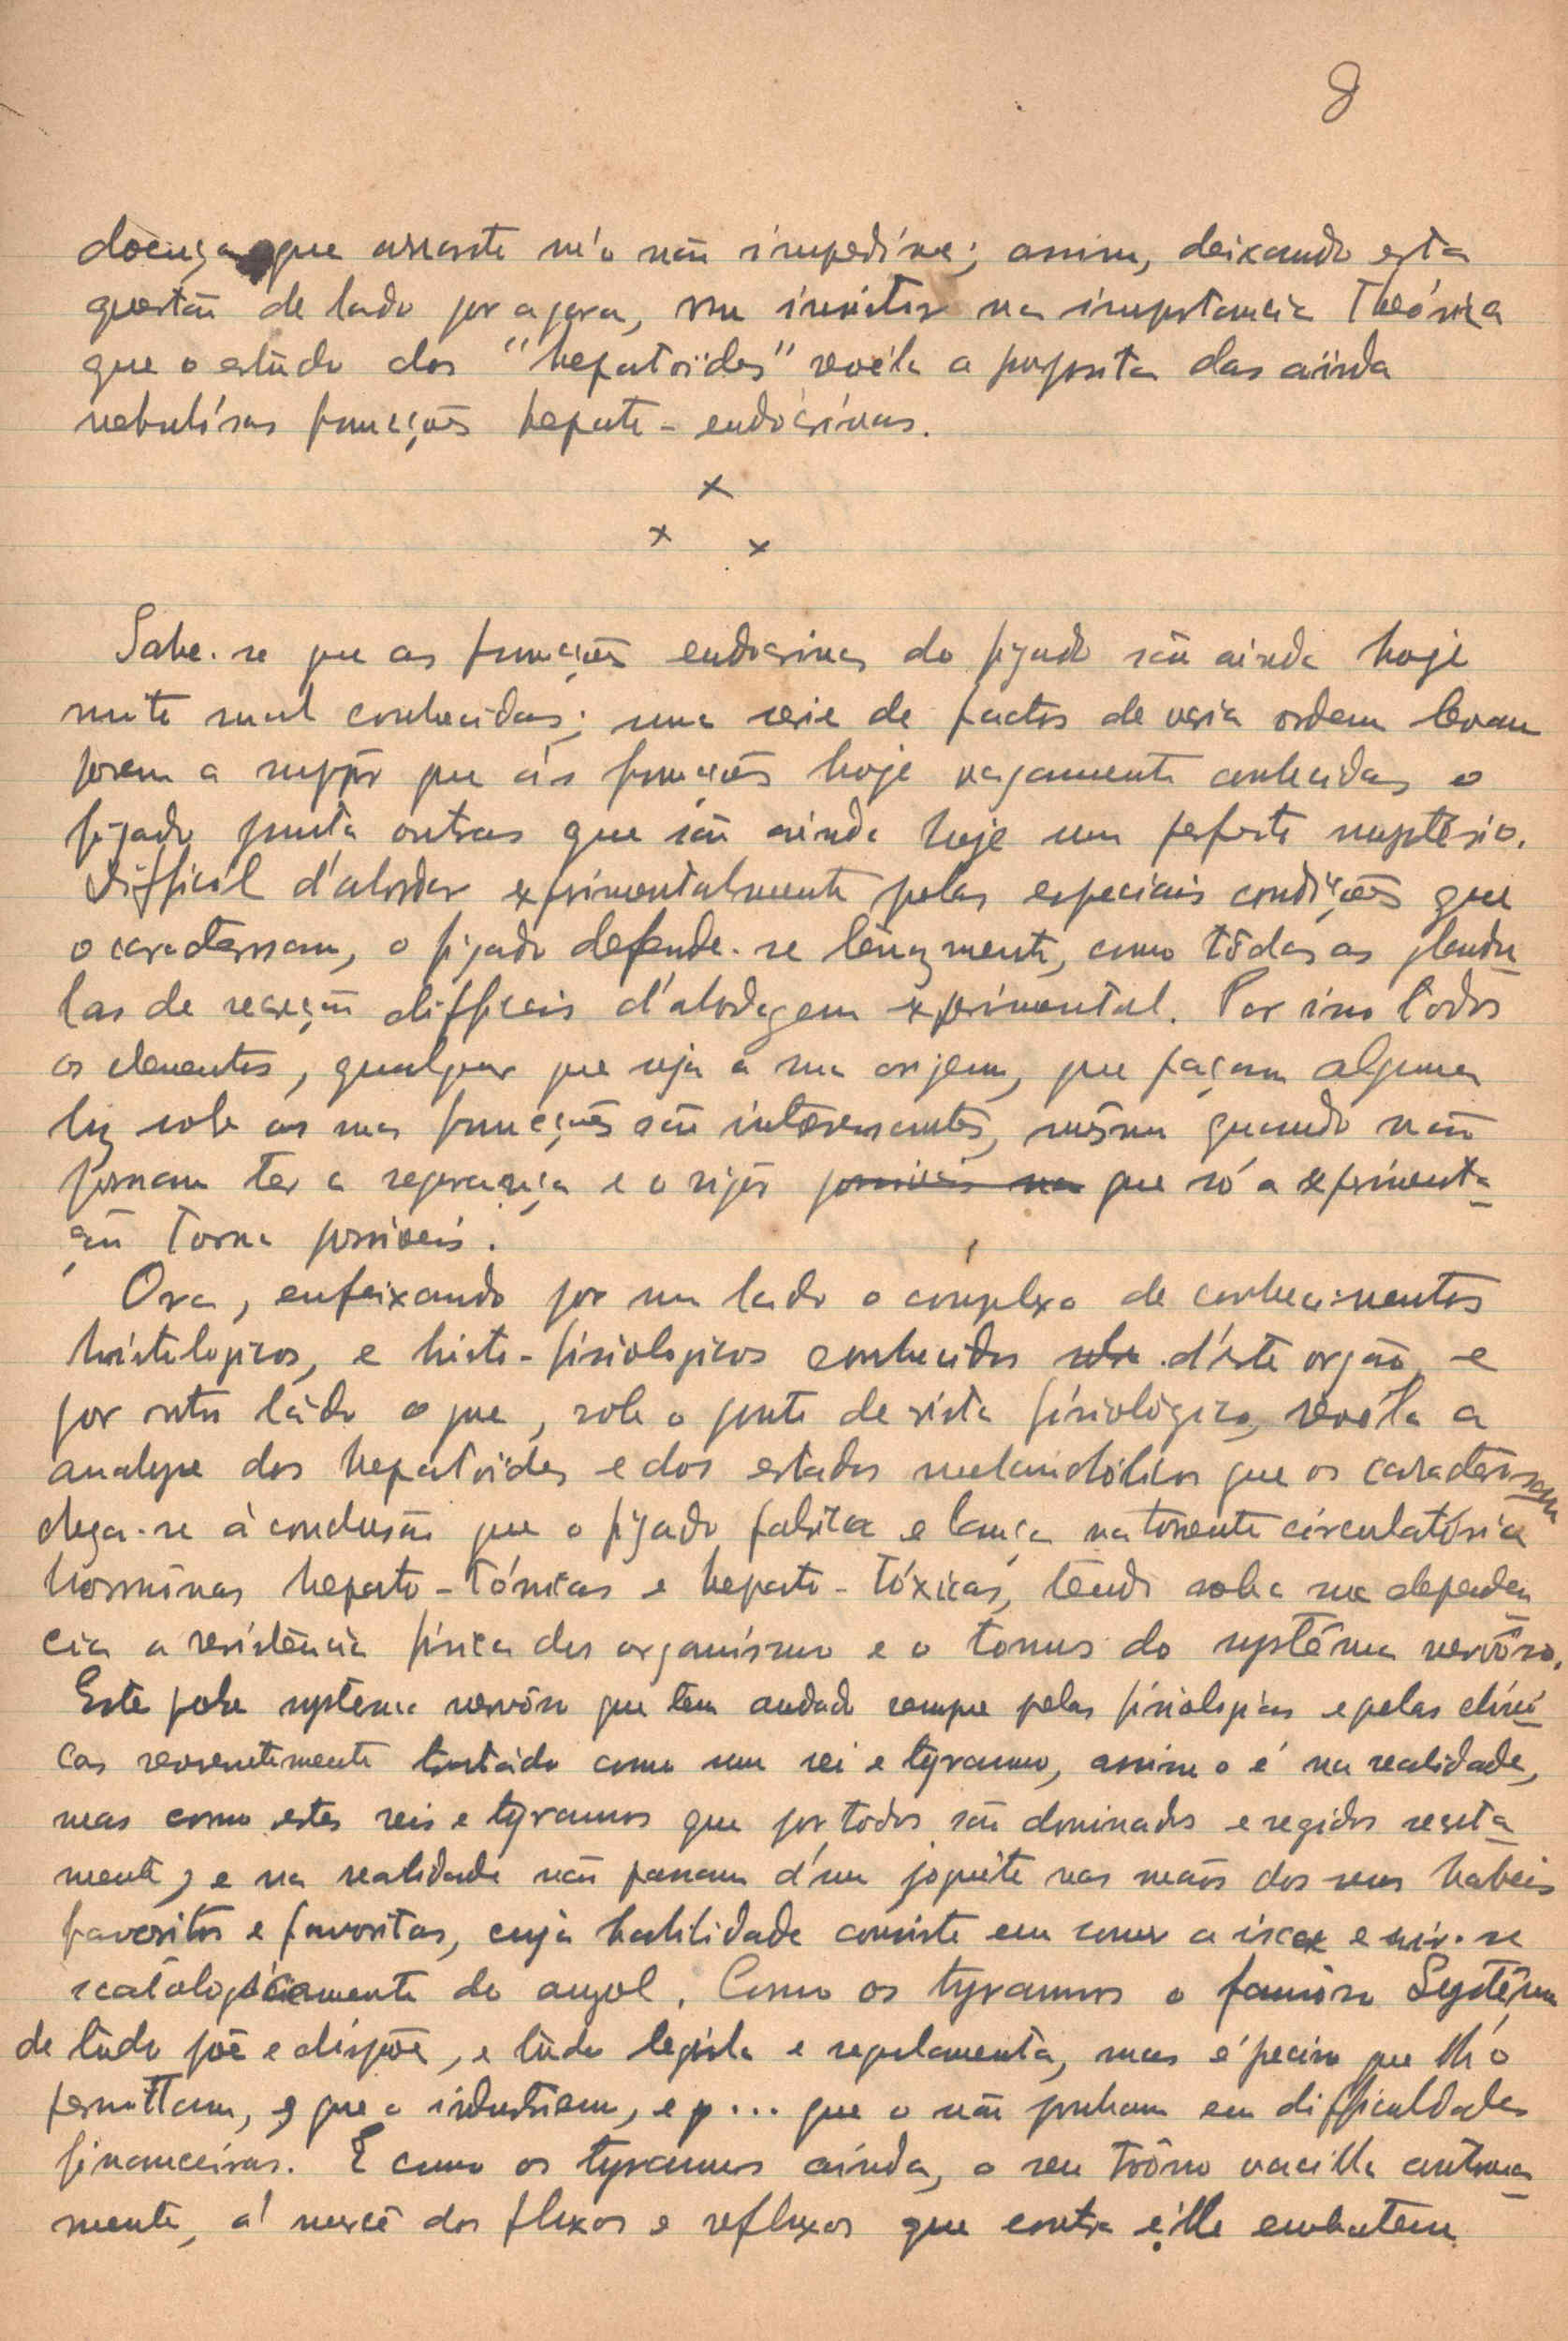 8
doença que arraste m'o não impedirem; assim, deixando esta
questão de lado por agora, vou insistir na importancia theórica
que o estudo dos "hepatoides" revéla a proposito das ainda
nebulósas funcções hepato-endócrinas.
x
x x
Sabe-se que as funcções endocrinas do figado são ainda hoje
muito mal conhecidas; uma serie de factos de varia ordem levam
porem a suppôr que ás funcções hoje vagamente conhecidas o
figado junta outras que são ainda hoje um perfeito mysterio.
Difficil d'abordar experimentalmente pelas especiais condições que
o caracterisam, o figado defende-se tenazmente, como tôdas as glandu-
las de secreção difficeis d'abordagem experimental. Por isso todos
os elementos, qualquer que seja a sua origem, que façam alguma
luz sobre as suas funcções são interessantes, mêsmo quando não
possam ter a segurança e o rigôr possiveis na que só a experimenta-
ção torna possiveis.
Ora, enfeixando por um lado o complexo de conhecimentos
histologicos, e histo-fisiologicos conhecidos sobre d'éste orgão, e
por outro lado o que, sob o ponto de vista fisiológico, revéla a
analyse dos hepatoides e dos estados melancólicos que os caracterisam
chega-se á conclusão que o figado fabríca e lança na torrente circulatória
hormónas hepato-tónicas e hepato-tóxicas, tendo sob a sua dependen-
cia a resistência fisica do organismo e o tonus do systêma nervôso.
Este pobre systema nervôso que tem andado sempre pelas fisiologias e pelas clini-
cas reverentemente tratado como um rei e tyranno, assim o é na realidade,
mas como estes reis e tyrannos que por todos são dominados e regidos secreta-
mente, e na realidade não passam d'um joguête nas mãos dos seus habeis
favoritos e favoritas, cuja habilidade consiste em comer a isca e rir-se
scatologicamente do anzol. Como os tyrannos o famôso Systêma
de tudo põe e dispõe, e tudo legisla e regulamenta, mas é preciso que lh'o
permittam, e que o industriem, e p... que o não ponham em difficuldades
financeiras. E como os tyrannos ainda, o seu trôno vacilla
mente, á mercê dos fluxos e refluxos que contra êlle embatem